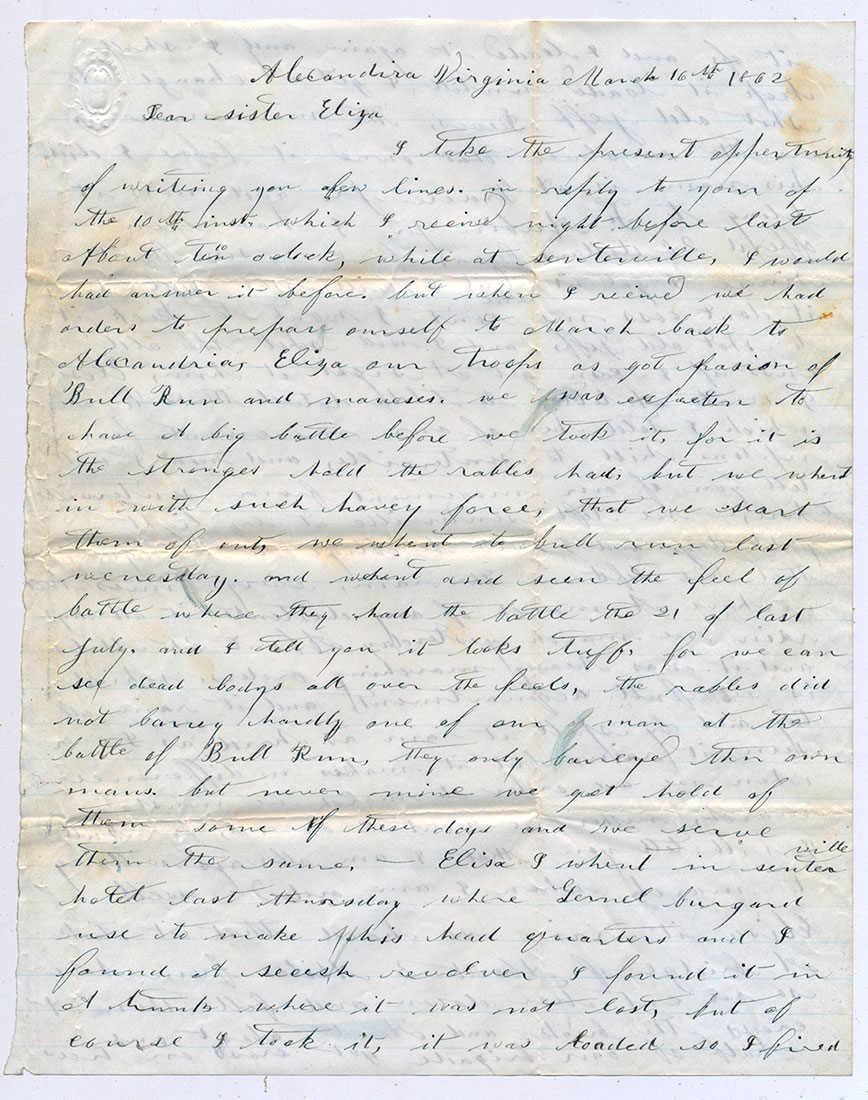 Alexandira Virginia March 16th 1862
Dear sister Eliza
I take the present oppertunity
of writing you afew lines. in reply to your of
the 10th inst. which I receive night before last
About ten oclock, while at senterville, I would
had answer it before. but when I reieve we had
orders to prepare ourself to March back to
Alexandria, Eliza our troops as got prasion of
Bull Run and maneses. we was expecten to
have A big battle before we took it, for it is
the stronges hold the rables had, but we whent
in with such havey force, that we start
them of out, we whent to bull run last
wenesday. and whent and seen the feel of
battle where they had the battle the 21 of last
July. and I tell you it looks tuff. for we can
see dead bodys all over the feels, the rables did
not barrey hardly one of our man at the
battle of Bull Run, they only barreye thir own
mans. but never mine we get hold of
them some of these days and we serve
them the same. — Eliza I whent in senter ville
hotel last thursday where Gernel burgard
use to make his head quarters and I
found A secesh revolver I found it in
A trunk where it was not lost, but of
course I took it, it was loaded so I fired